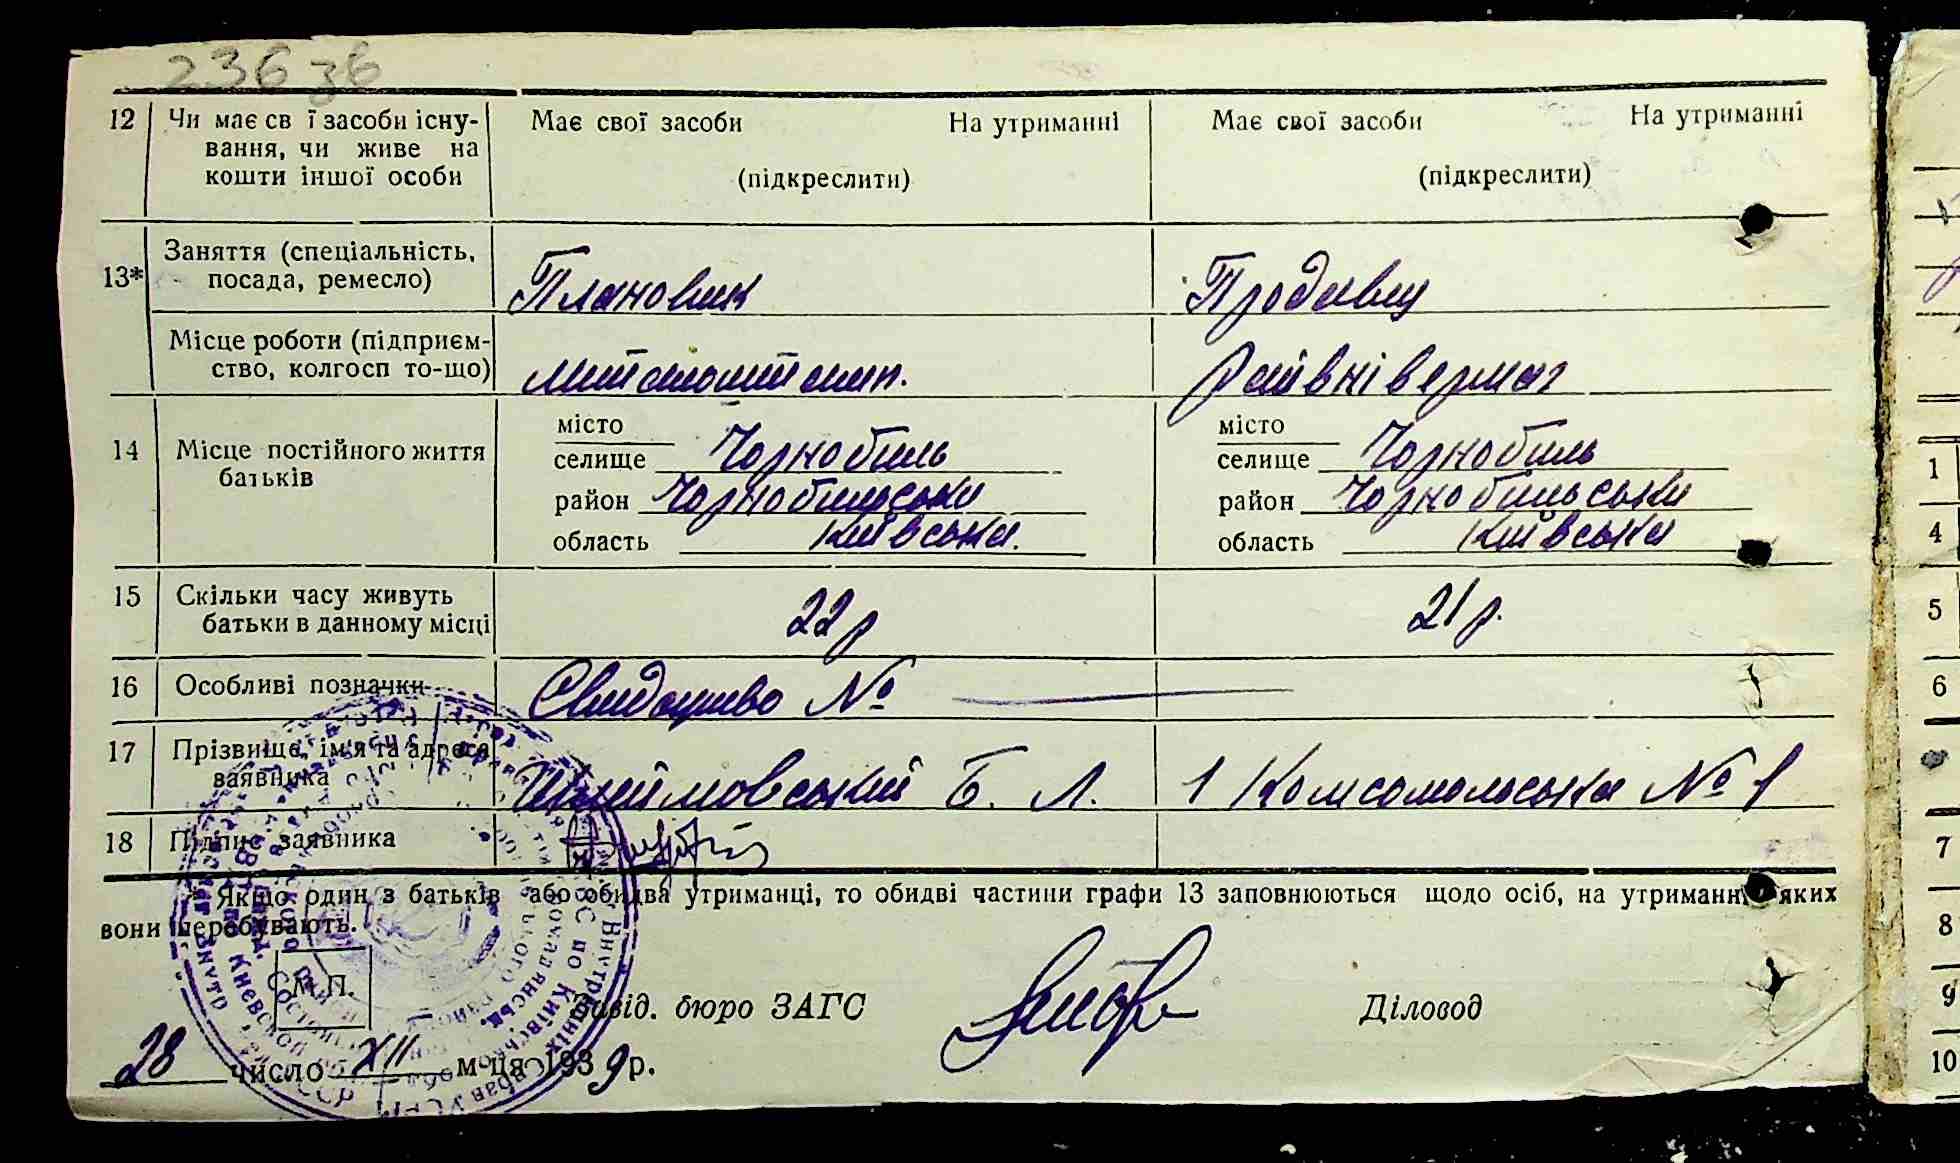 236 зв
12 Чи має св ї засоби існу- Має свої засоби На утриманні Має свої засоби На утриманні
вання, чи живе на
кошти іншої особи (підкреслити) (підкреслити)
13* Заняття (спеціальність, Плановик Продавец
посада, ремесло)
Місце роботи (підприєм-
ство, колгосп то-що)
місто місто
14 Місце постійного життя селище Чорнобиль селище Чорнобиль
батьків
район Чорнобильськи район Чорнобильськи
область Київська. область Київська
15 Скільки часу живуть 22 р 21 р.
батьки в данному місці
16 Особливі позначки №
17 Прізвище, ім'я та адреса Б. Л. 1 Комсомольська № 1
заявника
18 Підпис заявника
* Якщо один з батьків або обидва утриманці, то обидві частини графи 13 заповнюються щодо осіб, на утриманні яких
вони перебувають.
М.П.
Завід. бюро ЗАГС Діловод
28 число XII м-ця 1939 р.
1
4
5
6
7
8
9
10